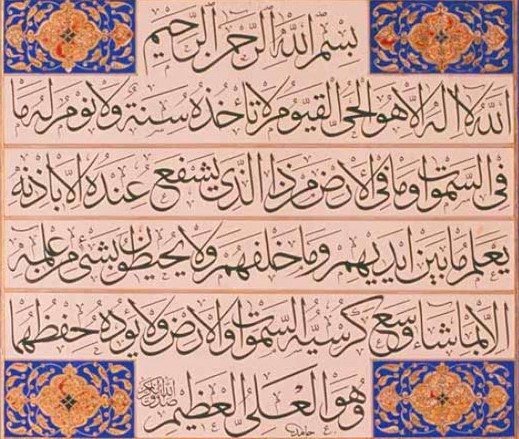 بِسْمِ اللهِ الرَّحْمٰنِ الرَّحِيمِ
اَللهُ لَا اِلٰهَ اِلَّا هُوَ الْحَيُّ الْقَيُّومُ لَا تَأْخُذُهُ سِنَةٌ وَلَا نَوْمٌ لَهُ مَا
فِي السَّمٰوَاتِ وَمَا فِي الْاَرْضِ مَنْ ذَا الَّذِي يَشْفَعُ عِنْدَهُ اِلَّا بِاِذْنِهِ
يَعْلَمُ مَا بَيْنَ اَيْدِيهِمْ وَمَا خَلْفَهُمْ وَلَا يُحِيطُونَ بِشَيْءٍ مِنْ عِلْمِهِ
اِلَّا بِمَا شَاءَ وَسِعَ كُرْسِيُّهُ السَّمٰوَاتِ وَالْاَرْضَ وَلَا يَؤُدُهُ حِفْظُهُمَا
وَهُوَ الْعَلِيُّ الْعَظِيمُ
حامد